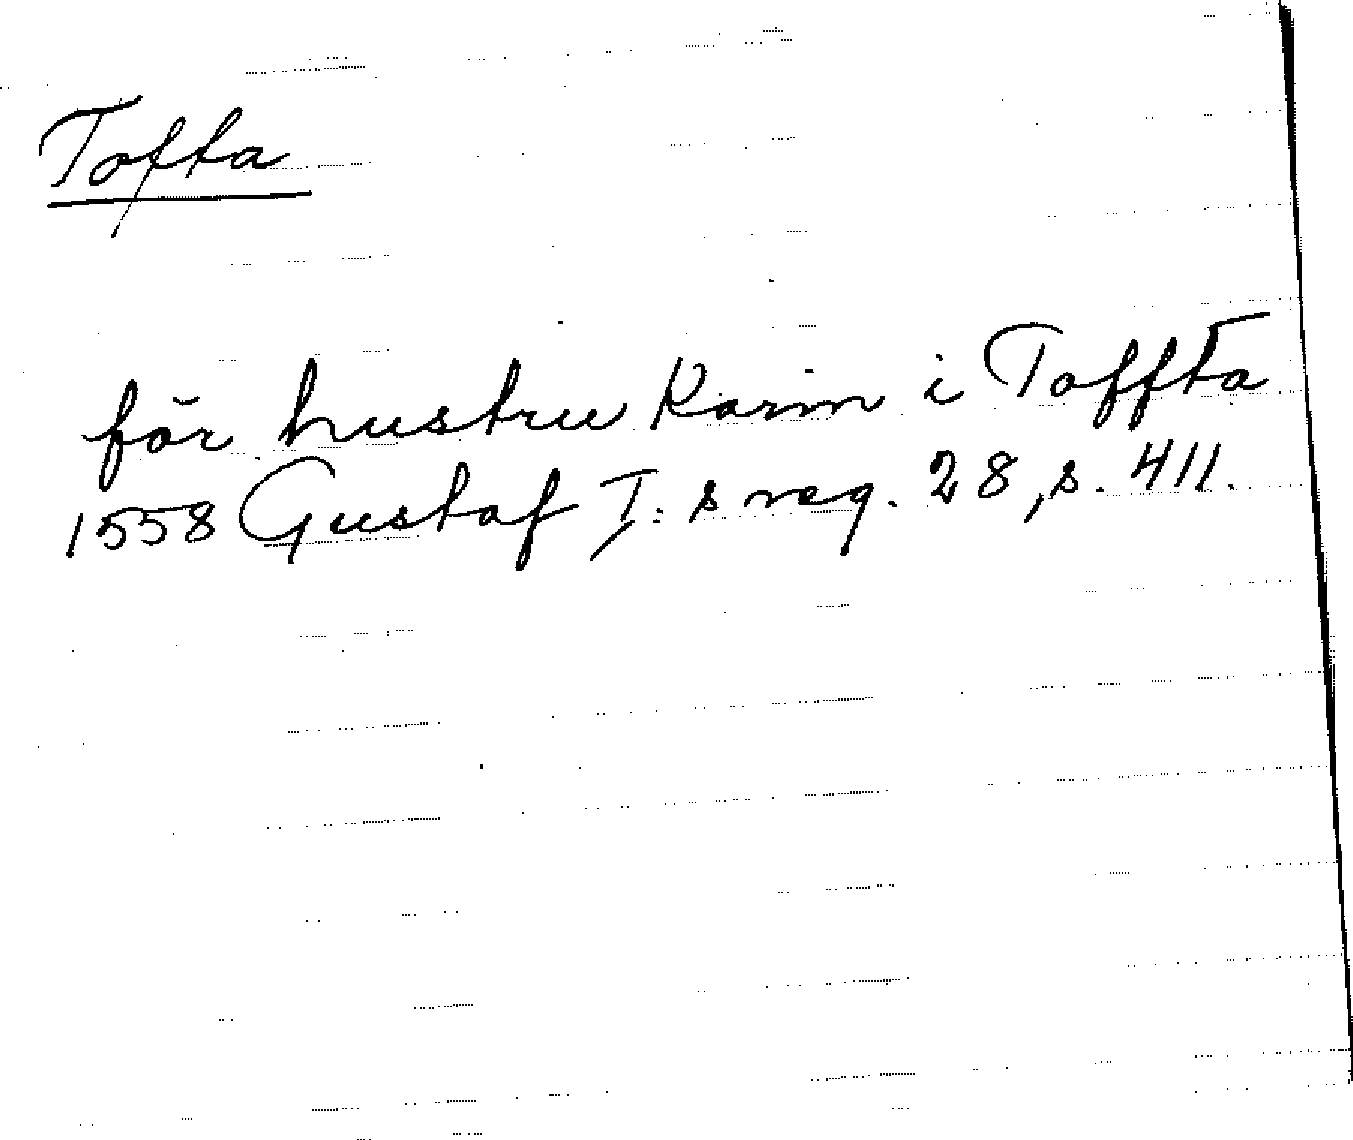 Tofta
för hustru Karin i Toffta
1558 Gustaf I:s reg. 28, s. 411.